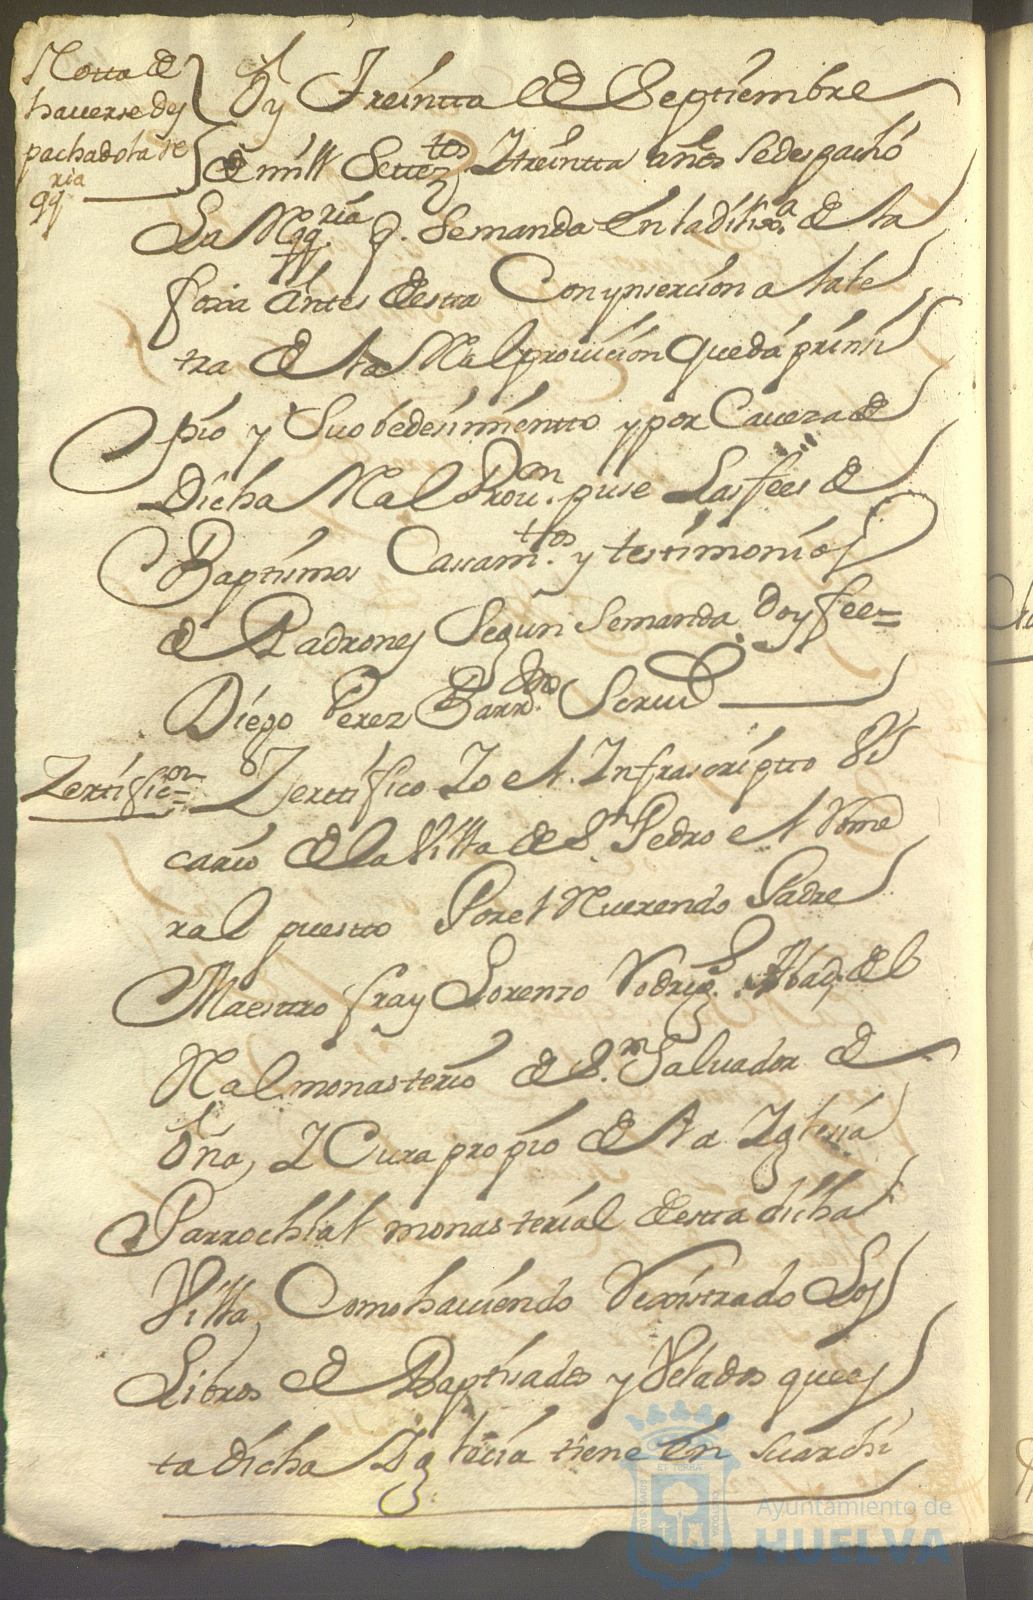 Notta de
haverse des
pachado la re
qq.ria
Oy Treintta de Septiembre
de mill Settez.tos Ytreintta años se despachó
La Reqq.ria q. Semanda en la dilix.a de la
foxa antes desta Con ynsercion a la le
tra de la Real provicion que dá prinsi
pio y Su obedesimientto y por Caveza de
Dicha Real Prov.on puse Las fees de
Baptismos Casam.ttos y testimonios
de Padrones Segun Semanda doy fee=
Diego Perez Barr.do Scrivº
Zertific.on= Zerttifico Yo el Infrascriptto Vi
cario de la Villa de S.n Pedro el Rome
ral puestto Por el Reverendo Padre
Maestro fray Lorenzo Rodrig.s Abad del
Real monasterio de S.n Salvador de
Oña, Y Cura propio de la Yglesia
Parrochial monasterial desta dicha
Villa, Como haviendo Rexistrado Los
Libros de Baptisados y Velados que es
ta dicha Yglecia tiene en su archi
Ayuntamiento de
HUELVA